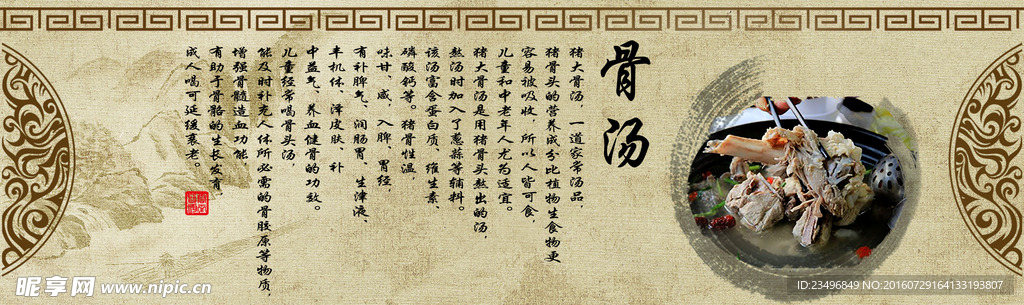 骨汤
猪大骨汤，一道家常汤品，
猪骨头的营养成分比植物生食物更
容易被吸收，所以人皆可食，
儿童和中老年人尤为适宜。
猪大骨汤是用猪骨头熬出的汤，
熬汤时加入了葱蒜等辅料。
该汤富含蛋白质、维生素、
磷酸钙等。猪骨性温，
味甘、咸、入脾、胃经，
有补脾气、润肠胃、生津液、
丰机体、泽皮肤、补
中益气、养血健骨的功效。
儿童经常喝骨头汤
能及时补充人体所必需的骨胶原等物质，
增强骨髓造血功能
有助于骨骼的生长发育，
成人喝可延缓衰老。
昵享网 www.nipic.cn
ID:23496849 NO:20160729164133193807